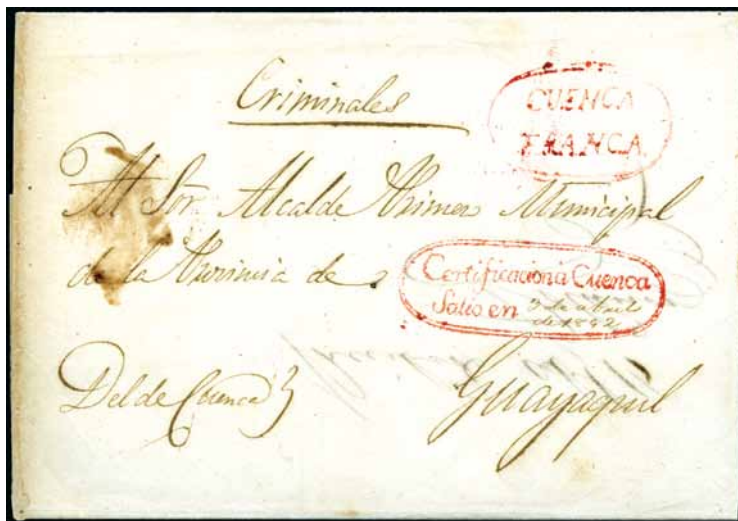 Criminales
CUENCA
FRANCA
Al Sor. Alcalde Primero Municipal
de la Provincia de
Certificacion á Cuenca
Salio en 3 de abril
de 1842
Del de Cuenca
Guayaquil